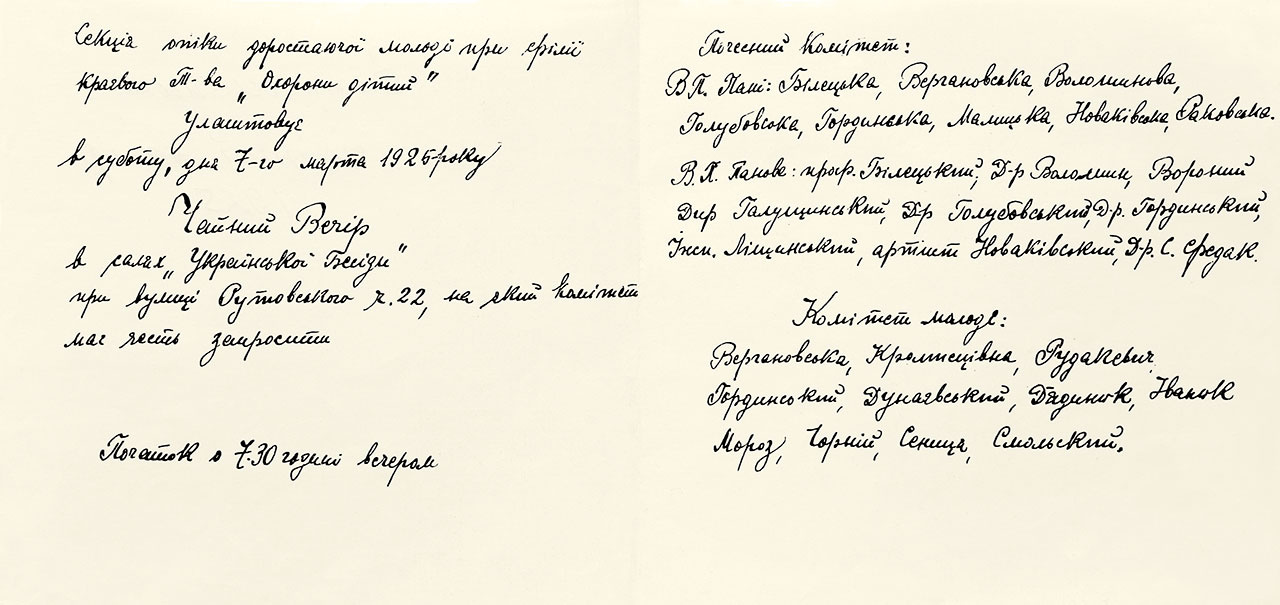 Секція опіки доростаючої молоді при філії
краєвого Т-ва „Охорони дітий"
Улаштовує
в суботу, дня 7-го марта 1925 року
Чайний Вечір
в салях „Української Бесіди"
при вулиці Рутовського ч. 22, на який комітет
має честь запросити
Початок о 7.30 годині вечером
Почесний Комітет:
В.П. Пані: Білецька, Вергановська, Волошинова,
Голубовська, Гординська, Малицька, Новаківська, Раковська.
В.П. Панове: проф. Білецький, Д-р Волошин, Вороний
Дир Галущинський, Д-р Голубовський, Д-р. Гординський,
Інсп. Ліщинський, артист Новаківський, Д-р. С. Федак.
Комітет молоді:
Вергановська, Кромпецівна, Рудакевич,
Гординський, Дунаєвський, Дядинюк, Іванюк
Мороз, Чорній, Сениця, Смольский.